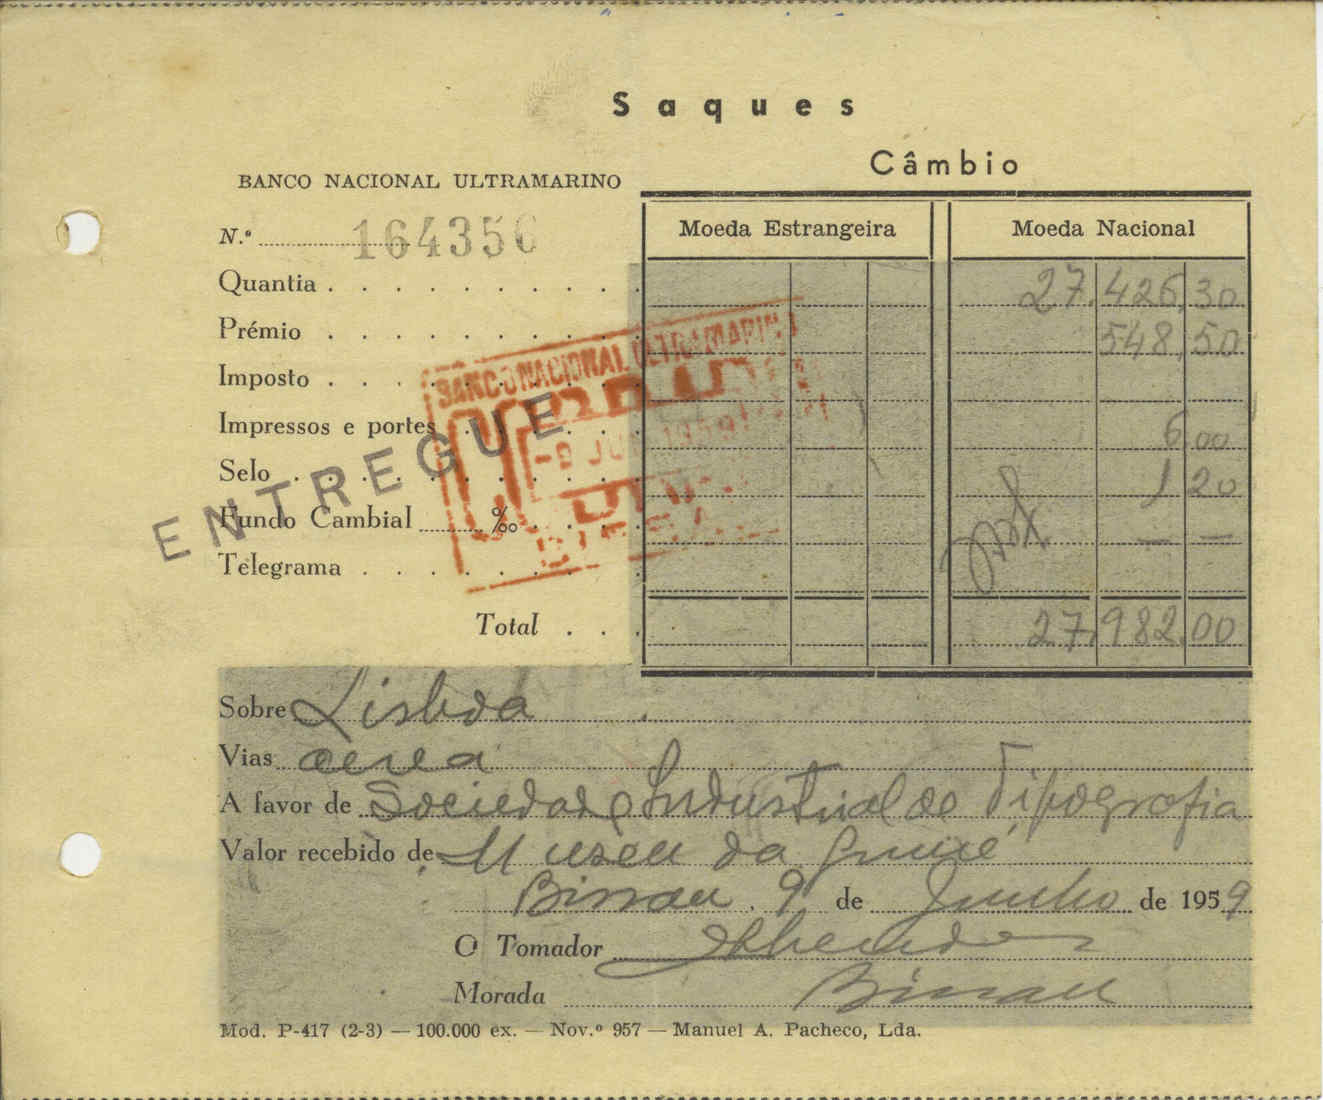 Saques
Câmbio
BANCO NACIONAL ULTRAMARINO
Moeda Estrangeira Moeda Nacional
N.º 164356
Quantia . . . . . . . . . . 27.426,30
Prémio . . . . . . . . . . 548,50
Imposto . . . . . . . . . .
Impressos e portes . . . . . . 6,00
Selo . . . . . . . . . . . 1 20
Fundo Cambial ‰ . . . . — —
Telegrama . . . . . . . . .
Total . . . 27.982,00
ENTREGUE
BANCO NACIONAL ULTRAMARINO
-9 JUN 1959
Sobre Lisboa
Vias aerea
A favor de Sociedade Industrial de Tipografia
Valor recebido de Museu da Guiné
Bissau, 9 de Junho de 1959
O Tomador
Morada Bissau
Mod. P-417 (2-3) — 100.000 ex. — Nov.º 957 — Manuel A. Pacheco, Lda.